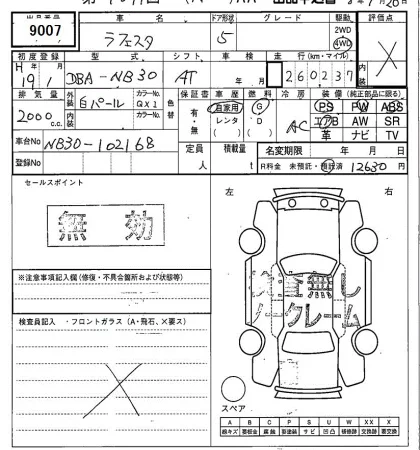 出品番号 車名 ドア形状 グレード 駆動 評価点
9007 ラフェスタ 5 2WD 4WD X
初度登録 型式 シフト 車検 走行(km・マイル) 内装
H 19/1 DBA-NB30 AT 年 月 260237
排気量 外装色 カラーNo. 色替 保証書 車歴 燃料 冷房 装備(純正部品に限る)
2000 c.c. 白パール QX1 有・無 自家用 レンタ G D AC PS PW ABS
内装色 カラーNo. エアB AW SR
車台No NB30-102168 革 ナビ TV
登録No 定員 人 積載量 t 名変期限 年 月 日
R料金 未預託・預託済 12630 円
セールスポイント
無効
左 右
※注意事項記入欄(修復・不具合箇所および状態等)
検査員記入 ・フロントガラス(A・飛石、×要ス)
ノークレーム
スペア
A B C P S U W XX X
線キズ 要板金 腐蝕 要塗装 サビ 凹凸 補修跡 交換跡 要交換